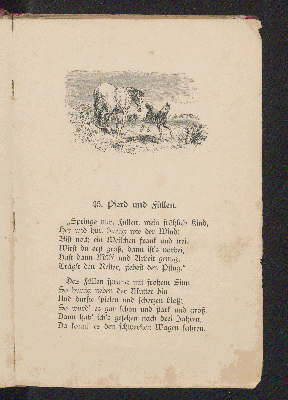 25. Pferd und Füllen.
„Springe nur, Füllen, mein fröhlich Kind,
Her und hin, hurtig wie der Wind!
Bist noch ein Weilchen frank und frei.
Wirst du erst groß, dann ist's vorbei,
Hast dann Müh' und Arbeit genug,
Trägst den Reiter, ziehest den Pflug.“
Das Füllen sprang mit frohem Sinn
So hurtig neben der Mutter hin
Und durfte spielen und scherzen bloß;
So wurd' es gar schön und stark und groß.
Dann hab' ich's gesehen nach drei Jahren,
Da konnt' es den schwersten Wagen fahren.